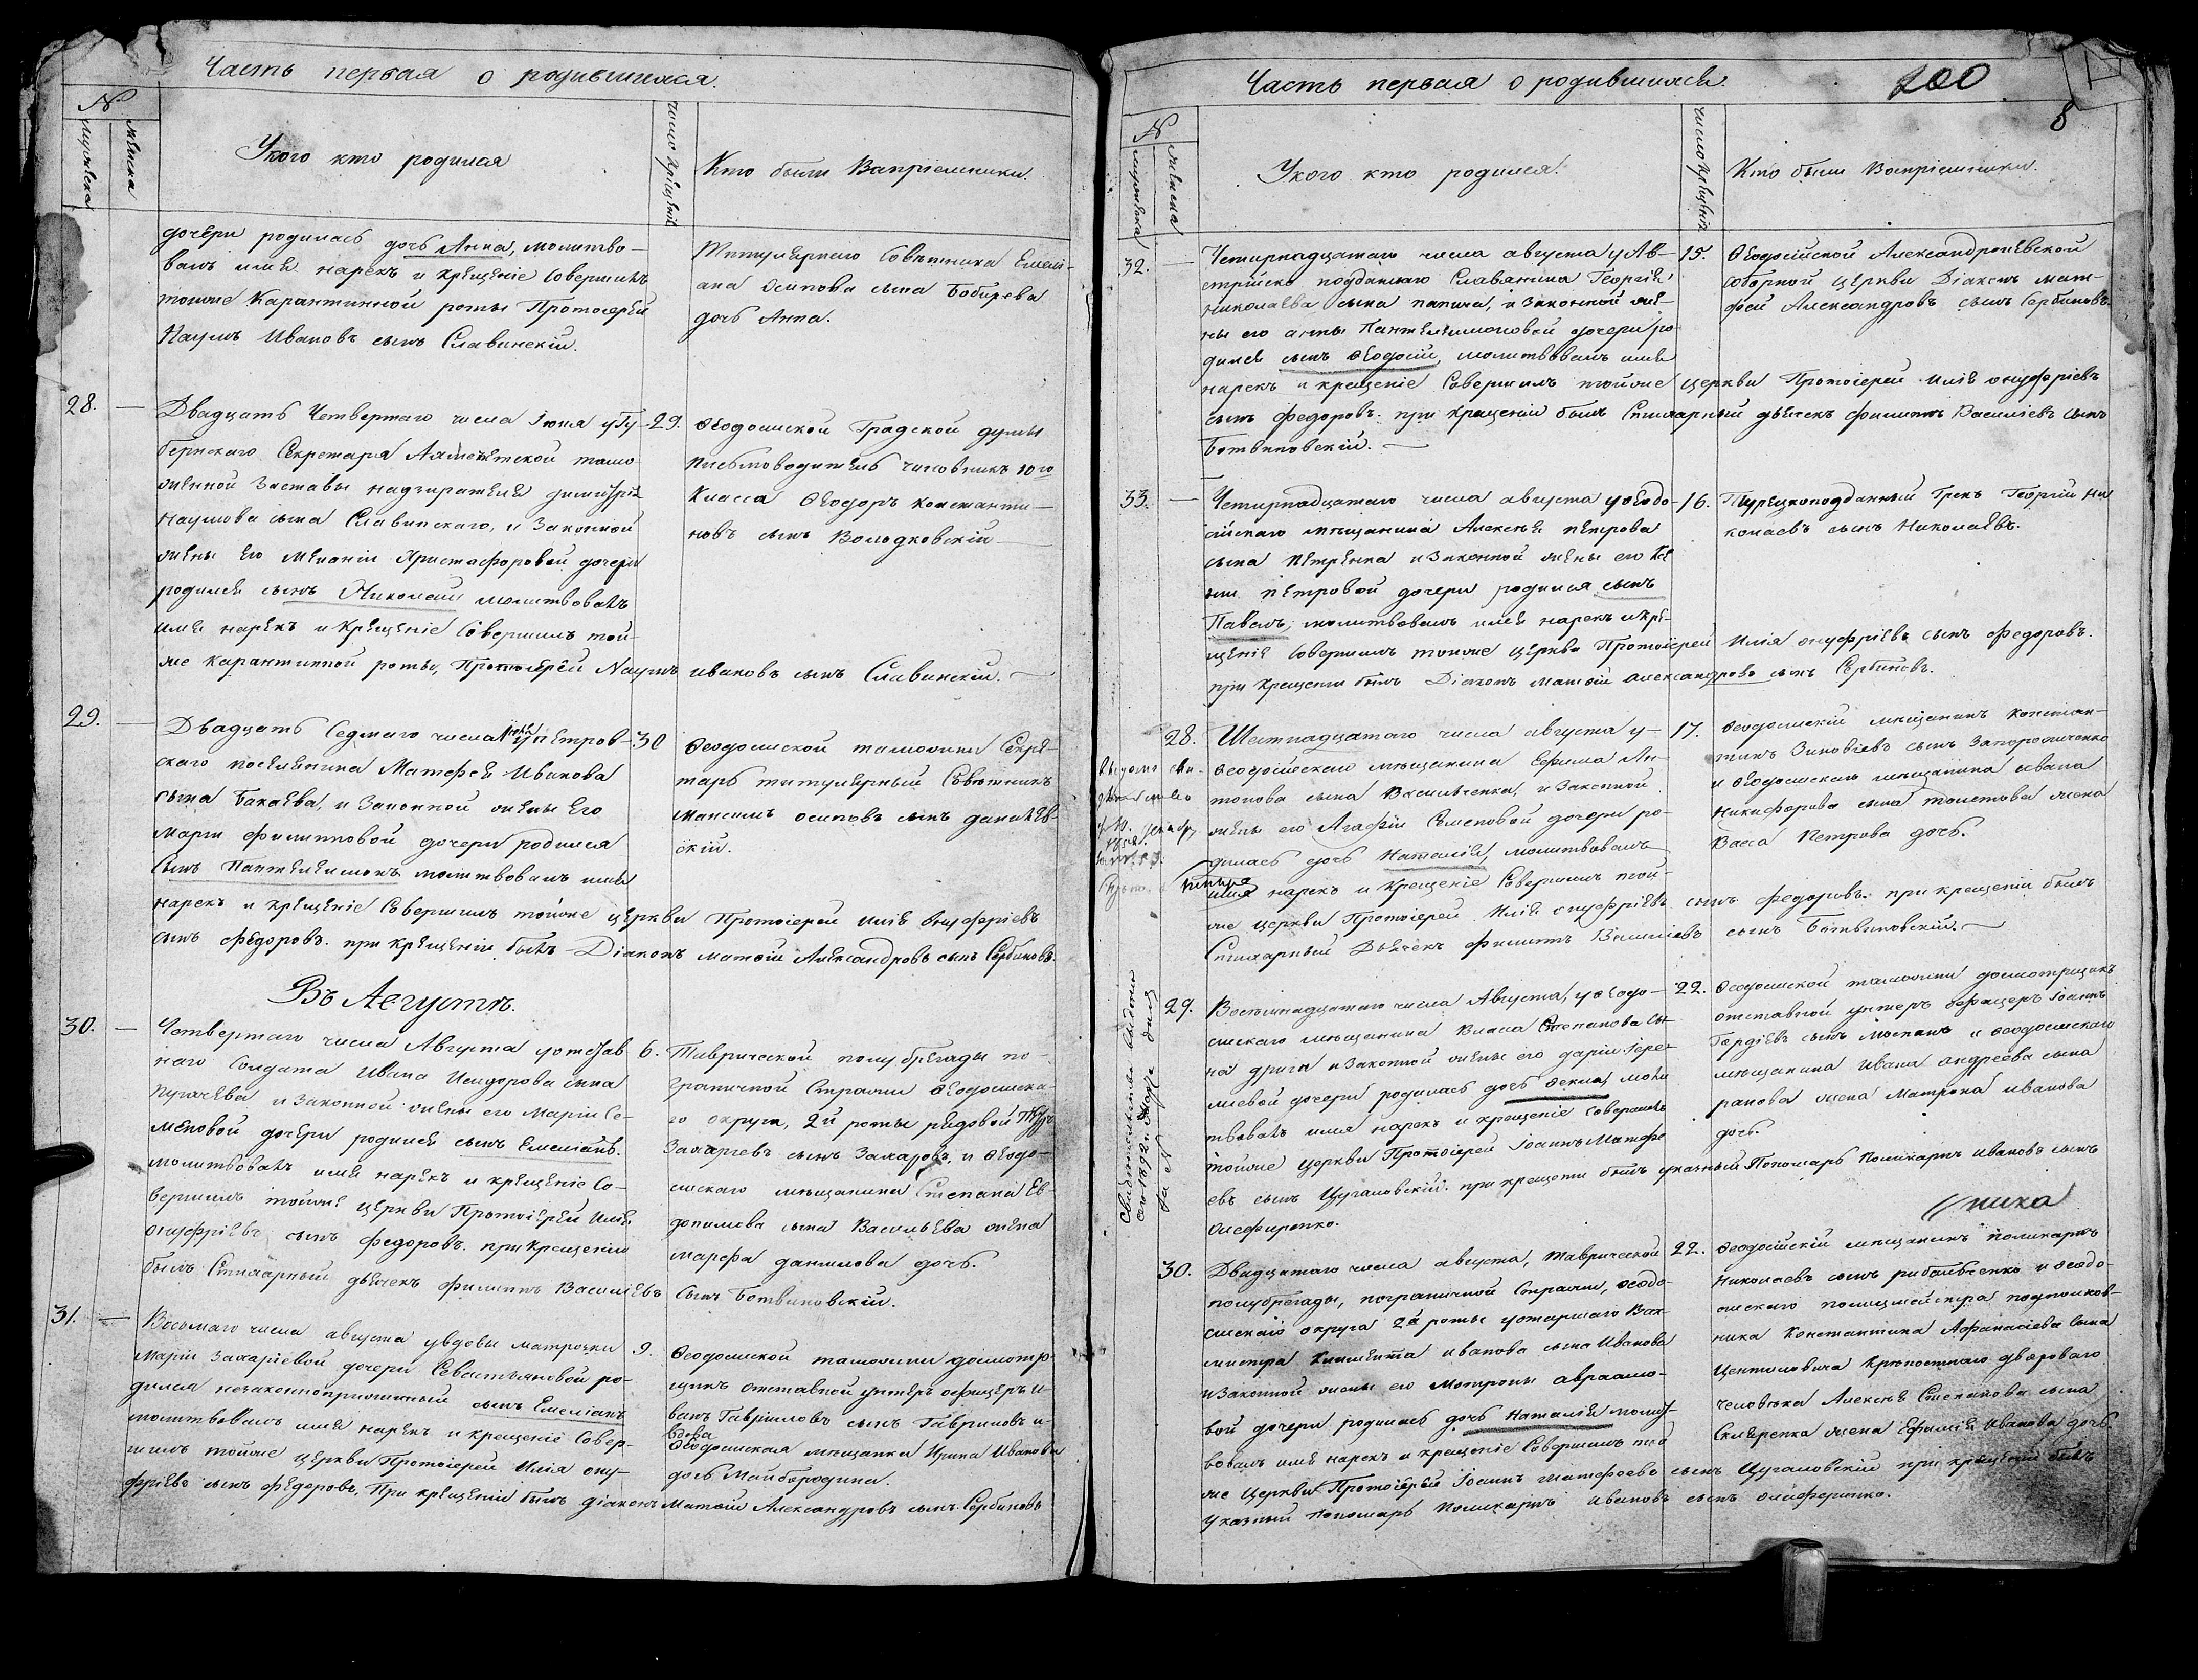 Часть первая о родившихся.
№
мужеска
женска
У кого кто родился
число крещенія
Кто были Вапріемники.
дочери родилась дочь Анна, молитво-
валъ имя нарекъ и крещеніе Совершилъ
тойже Карантинной роты Протоіерей
Наумъ Ивановъ сынъ Славинскій.
Титулярнаго Совѣтника Емели-
ана Осипова сына Бобирева
дочь Анна.
28.
Двадцать Четвертаго числа Іюня у Гу-
бернскаго Секретаря тамо-
женной Заставы надзирателя Димитрія
Наумова сына Славинскаго, и Законной
жены его Меланіи Христофоровой дочери
родился сынъ Николай молитвовалъ
имя нарекъ и Крещеніе Совершилъ той-
же Карантинной роты, Протоіерей Наумъ Ивановъ сынъ Славинскій.
29.
Ѳеодосійской Градской думы
письмоводитель чиновникъ 10го
Класса Ѳеодоръ Константи-
новъ сынъ Володковскій
29.
Двадцать Седмаго числа Іюля у Петров-
скаго поселянина Матфея Иванова
сына Бакаева, и Законной жены Его
Маріи Филипповой дочери родился
Сынъ Пантелеимонъ молитвовалъ имя
нарекъ и крещеніе Совершилъ тойже церкви Протоіерей Илія Онуфріевъ
сынъ Федоровъ. при крещеніи былъ Діаконъ Матфій Александровъ сынъ Сербиновъ.
30
Ѳеодосійской таможни Секре-
тарь титулярный Совѣтникъ
Максимъ Осиповъ сынъ Данилев-
скій.
Въ Августѣ.
30.
Четвертаго числа Августа у отстав-
наго Солдата Ивана Исидорова сына
Пугачева и Законной жены его Маріи Се-
меновой дочери родился сынъ Емеліанъ.
молитвовалъ имя нарекъ и крещеніе Со-
вершилъ тойже церкви Протоіерей Илія
Онуфріевъ сынъ Федоровъ. при крещеніи
былъ Стихарный дьячекъ Филиппъ Василіевъ Сынъ Ботвиновскій.
6.
Таврической полубрегады по-
граничной Стражи Ѳеодосійска-
го округа, 2й роты рядовой
Захаріевъ сынъ Захаровъ, и Ѳеодо-
сійскаго мѣщанина Степана Ев-
докимова сына Васильева жена
Марфа Данилова дочь.
31.
Восьмаго числа августа у вдовы матрозки
Маріи Захаріевой дочери Севастьяновой ро-
дился незаконноприжитый сынъ Емеліанъ
молитвовалъ имя нарекъ и крещеніе Совер-
шилъ тойже церкви Протоіерей Илія Ону-
фріевъ сынъ Федоровъ. При крещеніи былъ діаконъ Матфій Александровъ сынъ Сербиновъ
9.
Ѳеодосійской таможни досмотр-
щикъ отставной унтеръ офицеръ И-
ванъ Гавриловъ сынъ Гавриловъ и
вдова
Ѳеодосійская мѣщанка Ирина Иванова
дочь Майбородина.
Часть первая о родившихся.
200
8
№
мужеска
женска
У кого кто родился.
число крещенія
Кто были Воспріемники.
32.
Четырнадцатаго числа августа у Ав-
стрійско подданнаго Славянина Георгія
Николаева сына папича, и Законной же-
ны его Анны Пантелеимоновой дочери ро-
дился сынъ Ѳеодосій, молитвовалъ имя
нарекъ и крещеніе Совершилъ тойже церкви Протоіерей Илія Онуфріевъ
сынъ Федоровъ. при крещеніи былъ Стихарный дьячекъ Филиппъ Василіевъ сынъ
Ботвиновскій.
15.
Ѳеодосійской Александроневской
соборной церкви Діаконъ Мат-
фей Александровъ сынъ Сербиновъ.
33.
Четырнадцатаго числа августа у Ѳеодо-
сійскаго мѣщанина Алексея Петрова
сына Петренка и Законной жены его
Петровой дочери родился сынъ
Павелъ, молитвовалъ имя нарекъ и кре-
щеніе Совершилъ тойже церкви Протоіерей Илія Онуфріевъ сынъ Федоровъ.
при крещеніи былъ Діаконъ Матфій Александровъ сынъ Сербиновъ.
16.
Турецкоподданный Грекъ Георгій Ни-
колаевъ сынъ Николаевъ.
28.
Шестнадцатаго числа августа у
Ѳеодосійскаго мѣщанина Ефима Ан-
тонова сына Васильченка, и Законной
жены его Агафіи Семеновой дочери ро-
дилась дочь Наталія, молитвовалъ
имя нарекъ и крещеніе Совершилъ той-
же церкви Протоіерей Илія Онуфріевъ сынъ Федоровъ. при крещеніи былъ
Стихарный Дьячекъ Филиппъ Василіевъ сынъ Ботвиновскій.
17.
Ѳеодосійскій мѣщанинъ Констан-
тинъ Зиновіевъ сынъ Запорожченко
и Ѳеодосійскаго мѣщанина Ивана
Никифорова сына Толстова жена
Васса Петрова дочь.
29.
Восемнадцатаго числа Августа, у Ѳеодо-
сійскаго мѣщанина Власа Степанова сы-
на други и Законной жены его Даріи Іере-
міевой дочери родилась дочь Ѳекла, моли
твовалъ имя нарекъ и крещеніе совершилъ
тойже церкви Протоіерей Іоаннъ Матфе
евъ сынъ Цугановскій. при крещеніи былъ указный Пономарь Поликарпъ Ивановъ сынъ
Олефиренко.
22.
Ѳеодосійской таможни досмотрщикъ
отставной унтеръ офицеръ Іоаннъ
Гордіевъ сынъ и Ѳеодосійскаго
мѣщанина Ивана Андреева сына
рапова жена Матрона Иванова
дочь.
30.
Двадцатаго числа августа, Таврической
полубрегады, пограничной Стражи, Ѳеодо-
сійскаго округа 2й роты у старшаго Вах-
мистра Иванова сына Иванова
и Законной жены его Матроны Авраамо-
вой дочери родилась дочь Наталія молит-
вовалъ имя нарекъ и крещеніе Совершилъ той
же Церкви Протоіерей Іоаннъ Матфеевъ сынъ Цугановскій при крещеніи былъ
Указный Пономарь Поликарпъ Ивановъ сынъ Олеференко.
22.
Ѳеодосійскій мѣщанинъ Поликарпъ
Николаевъ сынъ рибальченко и Ѳеодо-
сійскаго полицмейстра подполков-
ника Константина Афанасіева сына
Центиловича Крѣпостнаго двороваго
человѣка Алексея Степанова сына
Скляренка жена Ефимія Иванова дочь.